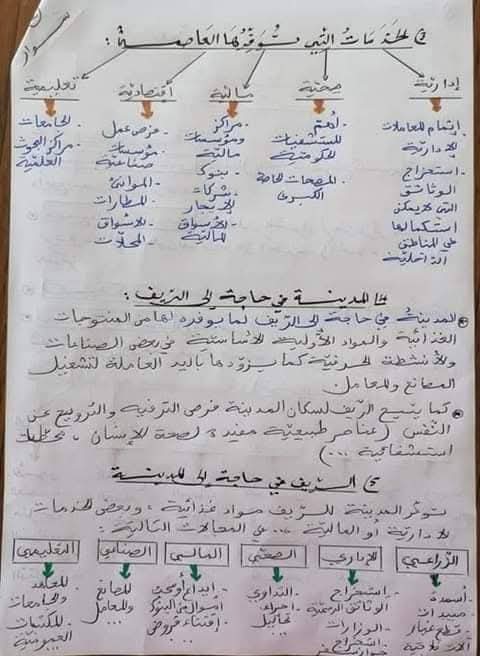 3) الخدمات التي توفرها العاصمة :
إدارية
صحية
مالية
اقتصادية
تعليمية
إتمام المعاملات
الإدارية
- استخراج
الوثائق
التي لا يمكن
استكمالها
في المناطق
الداخلية
- أهم
المستشفيات
الحكومية
- المصحات الخاصة
الكبرى
- مراكز
ومؤسسات
مالية
- بنوك
- شركات
الإيجار
- الأسواق
المالية
- فرص عمل
- مؤسسات
صناعية
- الموانئ
- المطارات
- الأسواق
- المحلات
- الجامعات
- مراكز البحوث
العلمية
4) المدينة في حاجة إلى الريف :
المدينة في حاجة إلى الريف لما يوفره لها من المنتوجات
الغذائية والمواد الأولية الأساسية في بعض الصناعات
والأنشطة الحرفية كما يزودها باليد العاملة لتشغيل
المصانع والمعامل
كما يتيح الريف لسكان المدينة فرص الترفيه والترويح عن
النفس (عناصر طبيعية مفيدة لصحة الإنسان، محطات
استشفائية ...)
5) الريف في حاجة إلى المدينة
توفر المدينة للريف مواد غذائية، وبعض الخدمات
الإدارية أو المالية ... في المجالات التالية :
الزراعي
الإداري
الصحي
المالي
الصناعي
التعليمي
أسمدة
مبيدات
قطع غيار
آلات فلاحية
- استخراج
الوثائق الرسمية
- الوزارات
- استخراج
- التداوي
- إجراء
تحاليل
- إيداع أو سحب
أموال من البنوك
- إقتناء قروض
- المصانع
والمعامل
...
- المعاهد
والجامعات
- المكتبات
العمومية